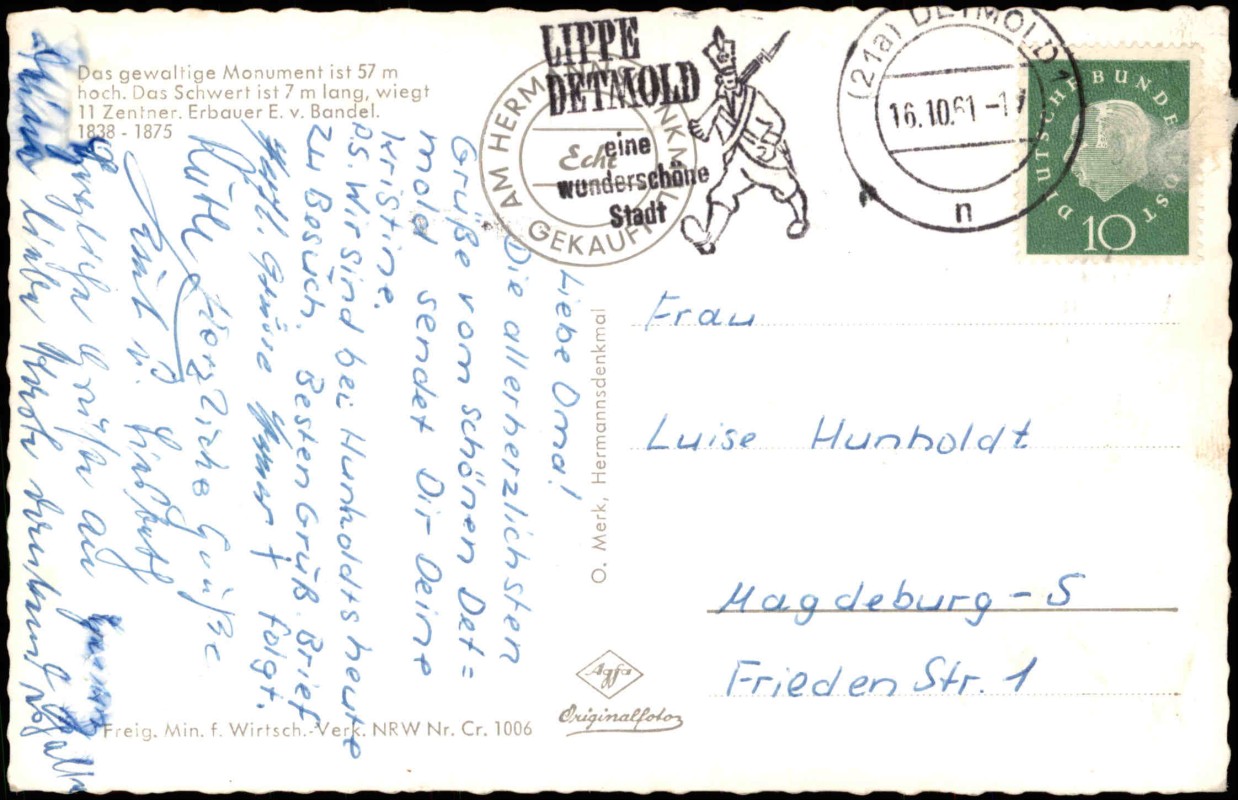 Das gewaltige Monument ist 57 m
hoch. Das Schwert ist 7 m lang, wiegt
11 Zentner. Erbauer E. v. Bandel.
1838 - 1875
LIPPE
DETMOLD
eine
wunderschöne
Stadt
AM HERMANNSDENKMAL GEKAUFT
Echt
(21a) DETMOLD 1
16.10.61
n
DEUTSCHE BUNDESPOST
10
Liebe Oma!
Die allerherzlichsten
Grüße vom schönen Det=
mold sendet Dir Deine
Kristine.
PS. Wir sind bei Hunholdts heute
zu Besuch. Besten Gruß. Brief
Herzl. Grüsse folgt.
Herzliche Grüße
Herzliche Grüße
O. Merk, Hermannsdenkmal
Frau
Luise Hunholdt
Magdeburg-S
Frieden Str. 1
Agfa
Originalfoto
Freig. Min. f. Wirtsch.-Verk. NRW Nr. Cr. 1006